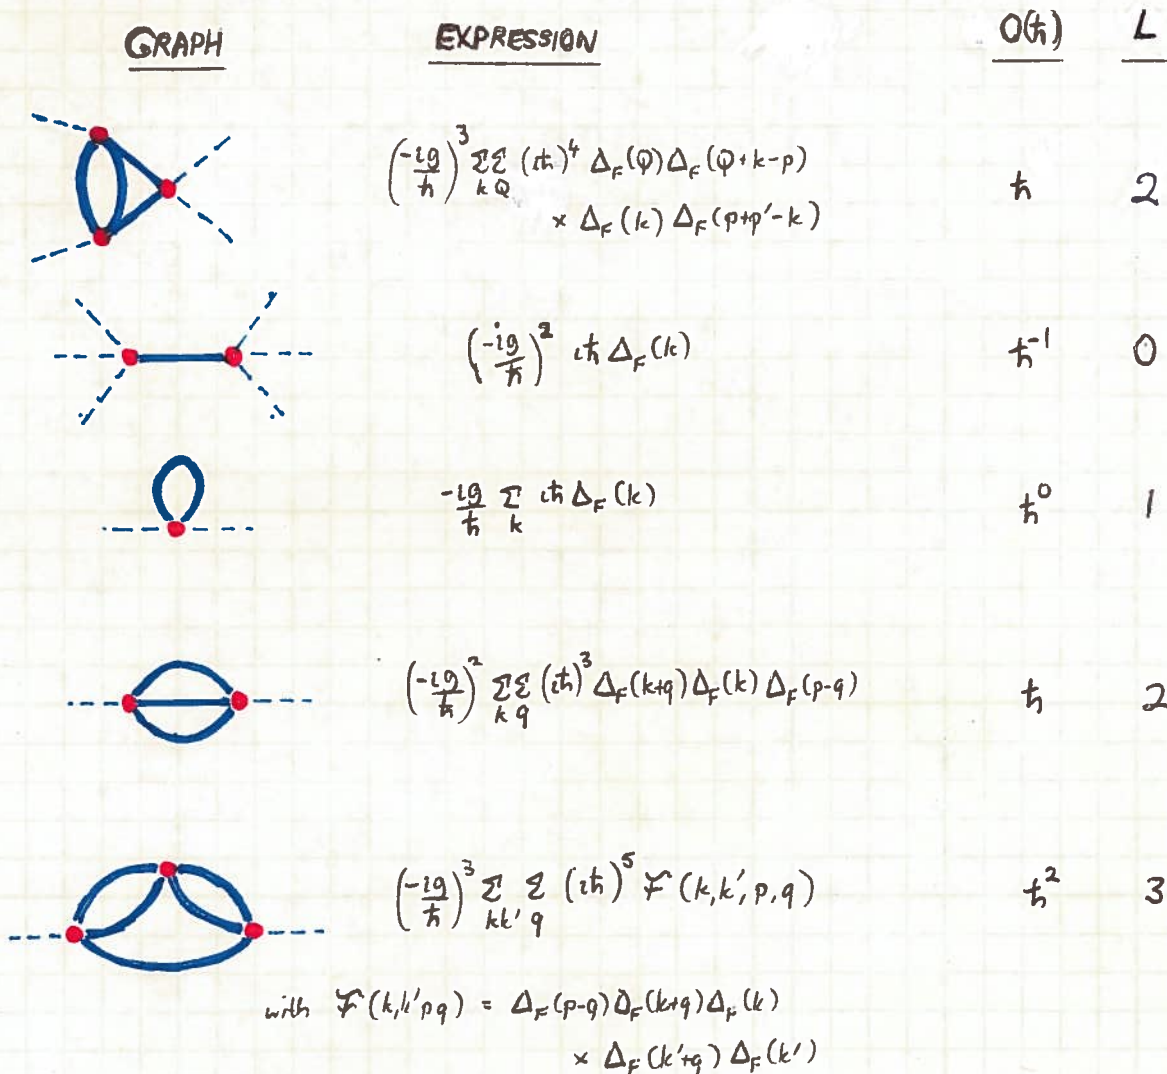 GRAPH EXPRESSION O(ħ) L
(-ig/ħ)³ Σ_k Σ_Q (iħ)⁴ Δ_F(Q) Δ_F(Q+k-p) ħ 2
× Δ_F(k) Δ_F(p+p'-k)
(-ig/ħ)² iħ Δ_F(k) ħ⁻¹ 0
-ig/ħ Σ_k iħ Δ_F(k) ħ⁰ 1
(-ig/ħ)² Σ_k Σ_q (iħ)³ Δ_F(k+q) Δ_F(k) Δ_F(p-q) ħ 2
(-ig/ħ)³ Σ_kk' Σ_q (iħ)⁵ F(k,k',p,q) ħ² 3
with F(k,k'pq) = Δ_F(p-q) Δ_F(k+q) Δ_F(k)
× Δ_F(k'+q) Δ_F(k')